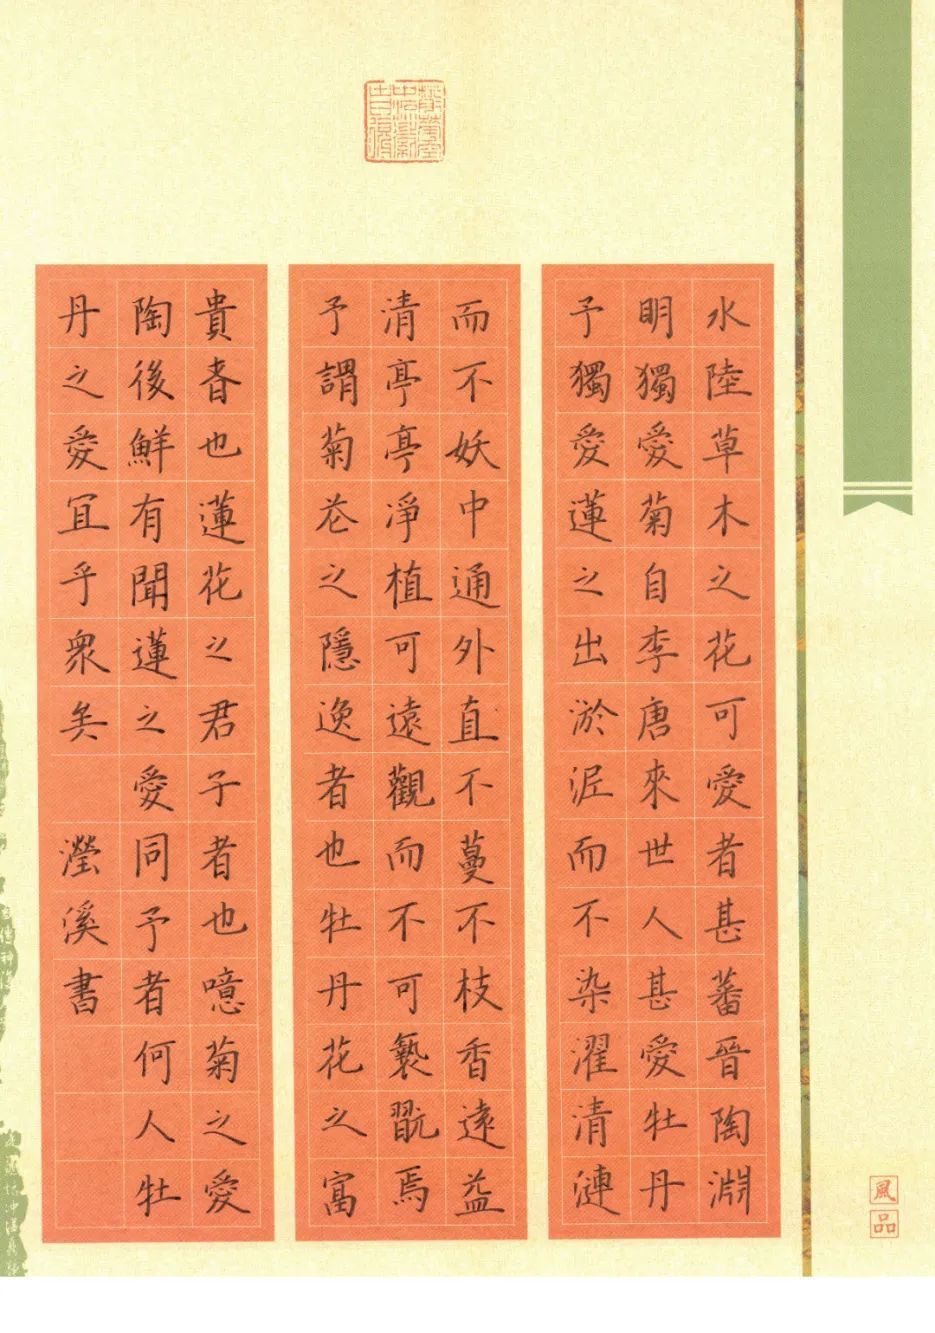 水陸草木之花可愛者甚蕃晉陶淵
明獨愛菊自李唐來世人甚愛牡丹
予獨愛蓮之出淤泥而不染濯清漣
而不妖中通外直不蔓不枝香遠益
清亭亭淨植可遠觀而不可褻翫焉
予謂菊花之隱逸者也牡丹花之富
貴者也蓮花之君子者也噫菊之愛
陶後鮮有聞蓮之愛同予者何人牡
丹之愛宜乎衆矣
瀅溪書
風
品